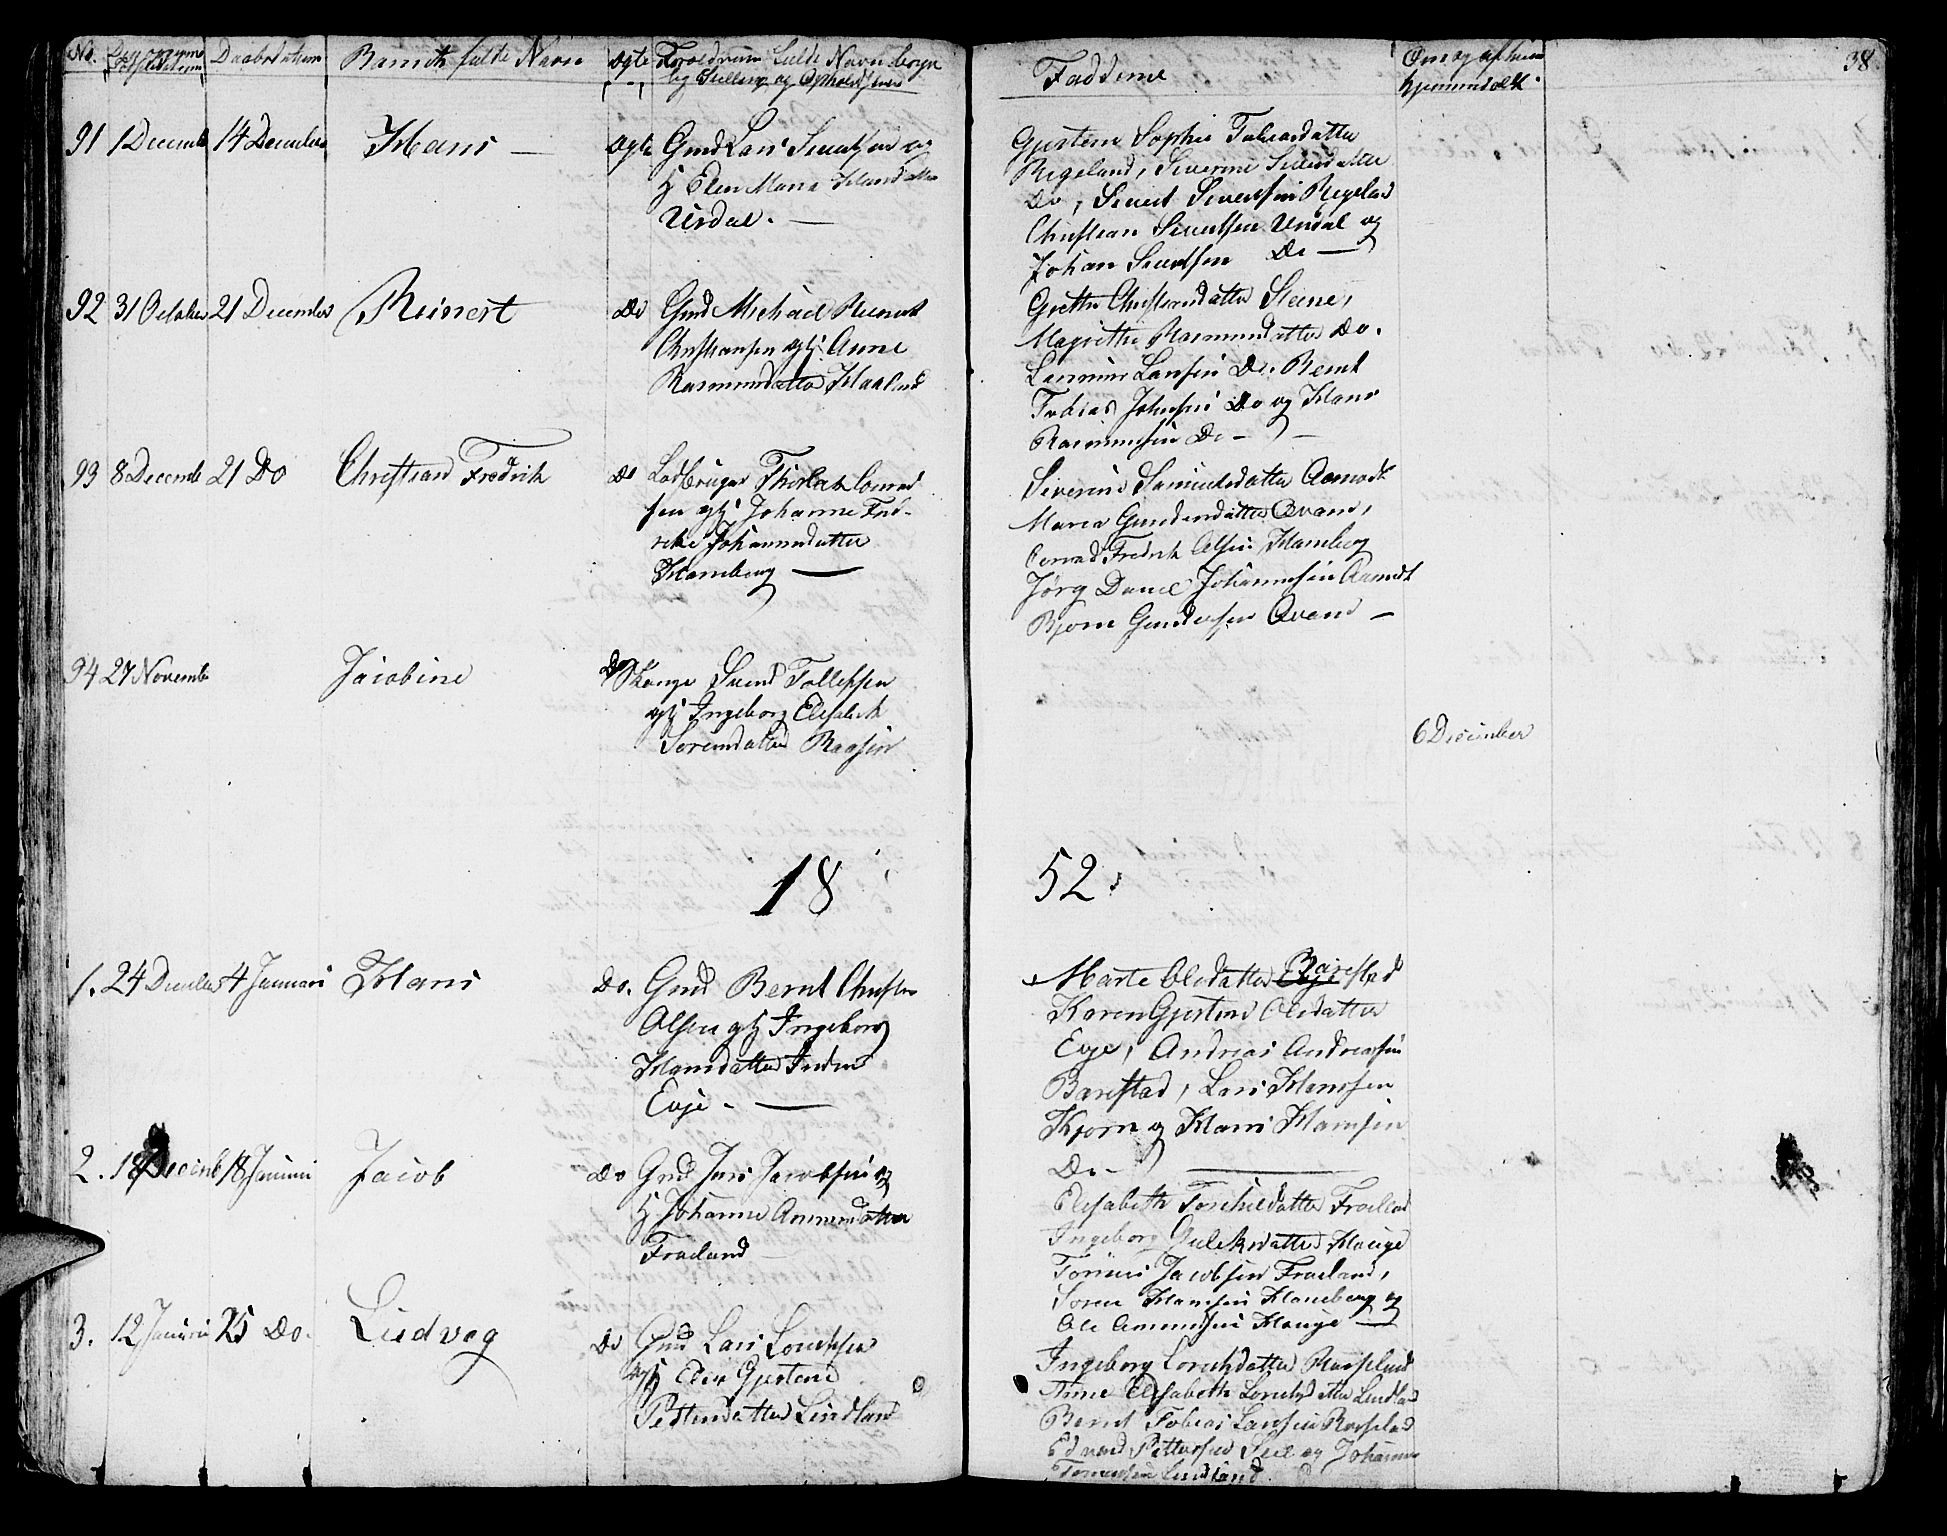 No.
Daabsdatum
Barnets fulde Navn
ægte
Forældrenes fulde Navn borger
lig Stilling og Opholdssted
Faddere
Om og af hvem
hjemmedøbt
38
91 1 Decemb 14 December Hans — ægte Gmd Lars Sivertsen og
H Elen Maria Hansdatter
Urdal. —
Gjertine Sophie Tobiasdatter
Regeland, Siverine Siversdatter
Do, Sivert Sivertsen Regeland
Christian Sivertsen Urdal og
Johan Sivertsen Do —
92 31 October 21 December Reinert Do Gmd Michael Reinert
Christiansen og H: Anne
Rasmusdatter Haaland
Grethe Christensdatter Steene,
Magrethe Rasmusdatter Do.
Larsen Do. Bernt
Tobias Johnsen Do og Hans
Rasmussen Do —
93 8 Decemb 21 Do Christian Fredrik Do Ladbruger Thorlak Conrad
sen og H: Johanne Fred-
rike Johannesdatter
Hamberg —
Siverine Samuelsdatter Aamodt
Maren Gundersdatter Qvam,
Conrad Fredrik Olsen Hamberg
Jørg Daniel Johannesen Aamodt
Bjorn Gundersen Qvam —
94 27 Novemb Jacobine Do Svend Tollefsen
og H Ingeborg Elisabeth
Sorensdatter
6 December
18 52.
1. 24 December 4 Januari Hans Do. Gmd Bernt Christen
Olsen og H Ingeborg
Hansdatter Indre
Evje. —
Marte Olsdatter Evje Barestad
Karen Gjertine Olsdatter
Evje, Andreas Andreassen
Barestad, Lars Hansen
Kjorn og Hans Hansen
Do — —
2. 18 Decemb 18 Januari Jacob Do Gmd Jens Jacobsen og
H Johanne Aanensdatter
Froeland —
Elisabeth Torkildsdatter Froeland
Ingeborg Gulaksdatter Houge
Tonnes Jacobsen Froeland,
Soren Hansen Haneberg og
Ole Amundsen Houge —
3. 12 Januari 25 Do. Ludvag Do Gmd Lars Lorentsen
og H Elen Gjertine
Pettersdatter Lindland
Ingeborg Lorentsdatter
Anne Elisabeth Lorentsdatter Lindland
Bernt Tobias Larsen
Edvard Pettersen og Johannes
Tonnesen Lindland